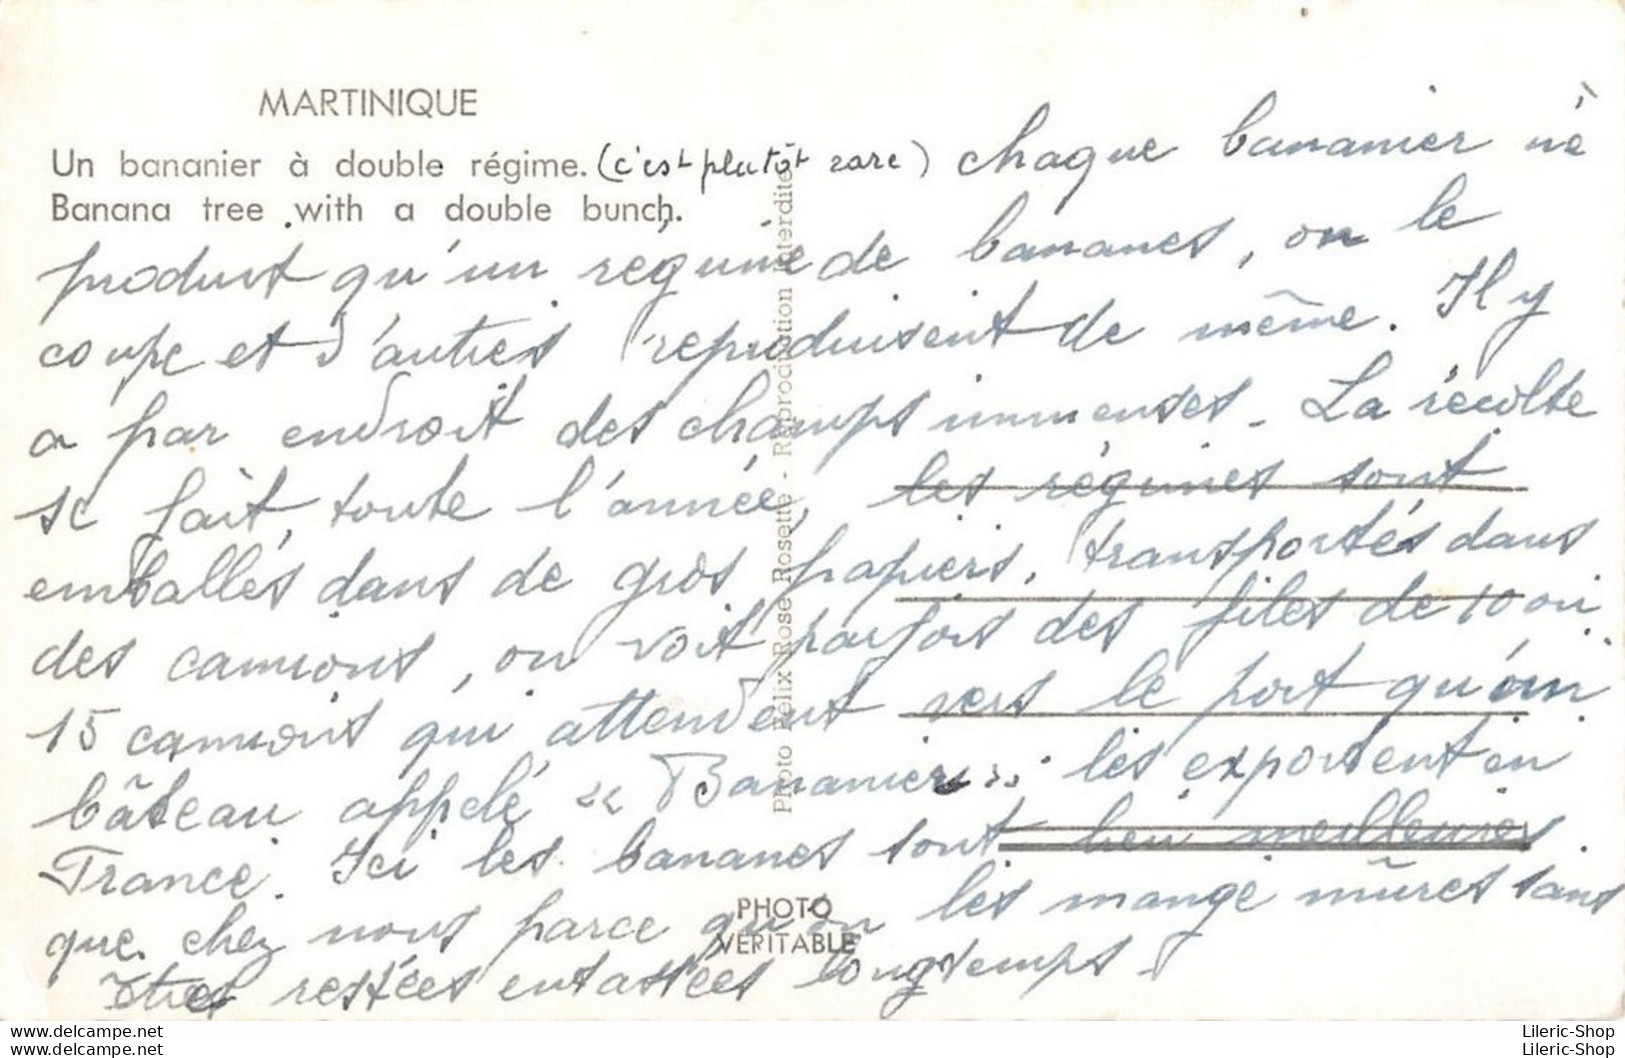 MARTINIQUE
Un bananier à double régime. (c'est plutôt rare) chaque bananier ne
Banana tree with a double bunch.
produit qu'un régime de bananes, on le
coupe et d'autres reproduisent de même. Il y
a par endroit des champs immenses - La récolte
se fait toute l'année, les régimes sont
emballés dans de gros papiers, transportés dans
des camions, on voit parfois des files de 10 ou
15 camions qui attendent vers le port qu'un
bâteau appelé « Bananier » les exportent en
France. Ici les bananes sont bien meilleures
que chez nous parce qu'on les mange mûres sans
être restées entassées longtemps.
Photo Félix Rose-Rosette - Reproduction interdite
PHOTO
VERITABLE
Un regard sur les cartes.com
Un regard sur les cartes.com
Lileric-Shop
Lileric-Shop